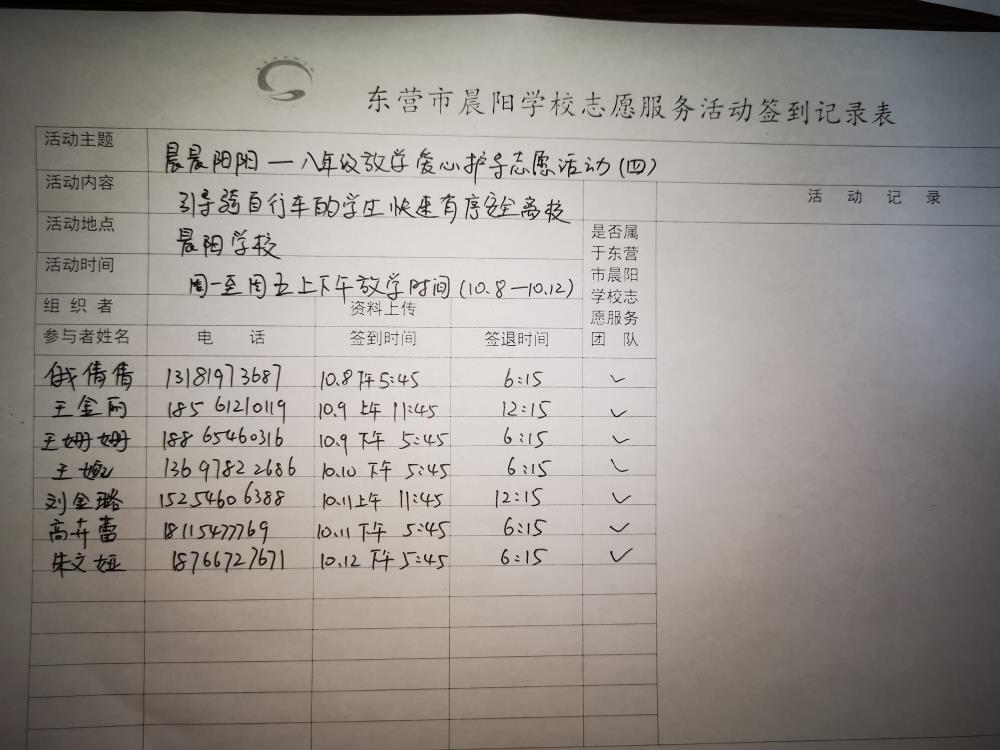 东营市晨阳学校志愿服务活动签到记录表
活动主题 晨晨阳阳一八年级放学爱心护导志愿活动(四)
活动内容 引导骑自行车的学生快速有序安全离校 活动记录
活动地点 晨阳学校
活动时间 周一至周五上下午放学时间(10.8—10.12)
组织者 资料上传
参与者姓名 电话 签到时间 签退时间 是否属于东营市晨阳学校志愿服务团队
倩倩 13181973687 10.8下午5:45 6:15 ✓
王金丽 18561210119 10.9上午11:45 12:15 ✓
王姗姗 18865460316 10.9下午5:45 6:15 ✓
王婉 13697822686 10.10下午5:45 6:15 ✓
刘金璐 15254606388 10.11上午11:45 12:15 ✓
高卉蕾 18115477769 10.11下午5:45 6:15 ✓
朱文娅 18766727671 10.12下午5:45 6:15 ✓